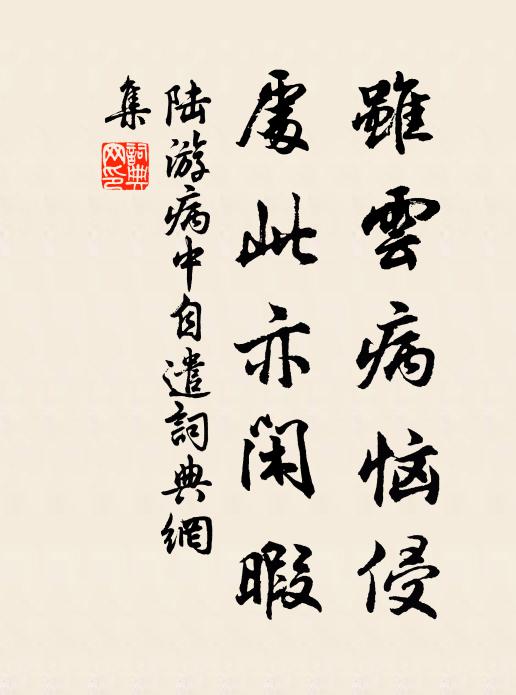 雖雲病惱侵
處此亦閑暇
陆游病中自遣詞典網
集
詞典網印